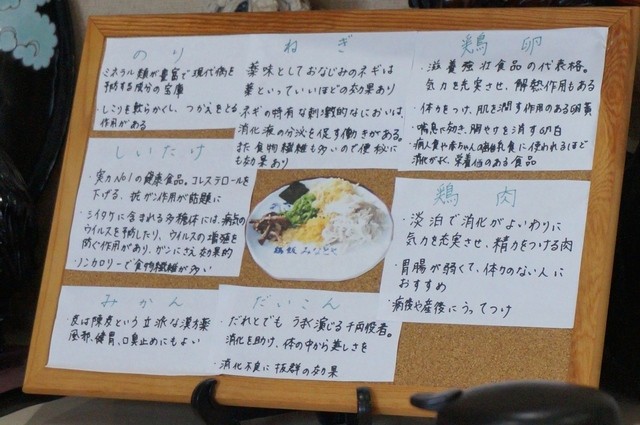 のり
ミネラル類が豊富で現代病を
予防する成分の宝庫
・しこりを軟らかくし、つかえをとる
作用がある
ねぎ
薬味としておなじみのネギは
薬といっていいほどの効果あり
・ネギの特有な刺激的なにおいは、
消化液の分泌を促す働きがある。
また食物繊維も多いので便秘に
も効果あり
鶏卵
・滋養強壮食品の代表格。
気力を充実させ、解熱作用もある
・体力をつけ、肌を潤す作用のある卵黄
・喘息に効き、胸やけを消す卵白
・病人食や赤ちゃんの離乳食に使われるほど
消化がよく、栄養価のある食品
しいたけ
・実力No1の健康食品。コレステロールを
下げる、抗ガン作用が話題に
・シイタケに含まれる多糖体には、病気の
ウイルスを予防したり、ウイルスの増殖を
防ぐ作用があり、ガンにさえ効果的
・ノンカロリーで食物繊維が多い
鶏飯 みなとや
鶏肉
・淡泊で消化がよいわりに
気力を充実させ、精力をつける肉
・胃腸が弱くて、体力のない人に
おすすめ
・病後や産後にうってつけ
みかん
・皮は陳皮という立派な漢方薬
風邪、健胃、口臭止めにもよい
だいこん
・だれとでもうまく演じる千両役者。
消化を助け、体の中から美しさを
・消化不良に抜群の効果